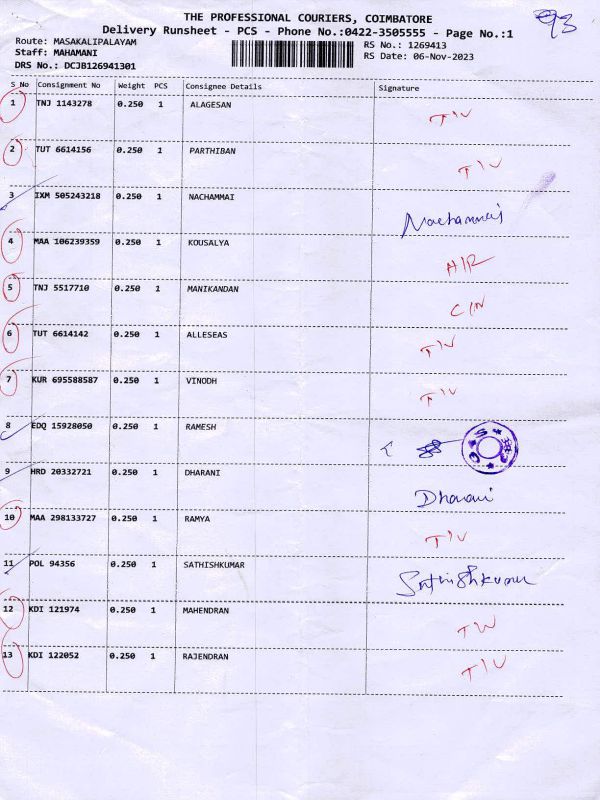 THE PROFESSIONAL COURIERS, COIMBATORE
93
Delivery Runsheet - PCS - Phone No.:0422-3505555 - Page No.:1
Route: MASAKALIPALAYAM
RS No.: 1269413
Staff: MAHAMANI
RS Date: 06-Nov-2023
DRS No.: DCJB126941301
S No Consignment No Weight PCS Consignee Details Signature
1 TNJ 1143278 0.250 1 ALAGESAN TIV
2 TUT 6614156 0.250 1 PARTHIBAN TIV
3 IXM 505243218 0.250 1 NACHAMMAI Nachammai
4 MAA 106239359 0.250 1 KOUSALYA
5 TNJ 5517710 0.250 1 MANIKANDAN
6 TUT 6614142 0.250 1 ALLESEAS TIV
7 KUR 695588587 0.250 1 VINODH TIV
8 EDQ 15928050 0.250 1 RAMESH
9 HRD 20332721 0.250 1 DHARANI Dharani
10 MAA 298133727 0.250 1 RAMYA TIV
11 POL 94356 0.250 1 SATHISHKUMAR Sathishkumar
12 KDI 121974 0.250 1 MAHENDRAN TIV
13 KDI 122052 0.250 1 RAJENDRAN TIV